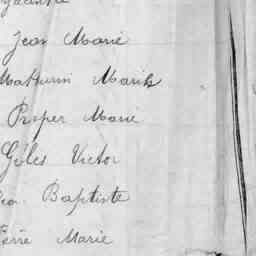 Jean Marie
Mathurin Marie
Prosper Marie
Gilles Victor
Baptiste
Pierre Marie